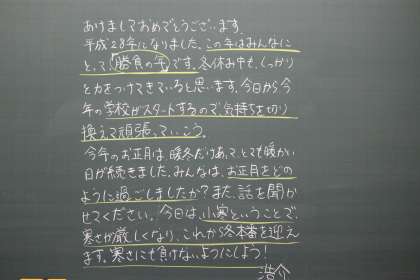 あけましておめでとうございます
平成28年になりました。この年はみんなに
とって「勝負の年」です。冬休み中も、しっかり
と力をつけてきていると思います。今日から今
年の学校がスタートするので、気持ちを切り
換えて頑張っていこう。
今年のお正月は、暖冬だけあって、とても暖かい
日が続きました。みんなは、お正月をどの
ように過ごしましたか?また、話を聞か
せてください。今日は、小寒ということで、
寒さが厳しくなり、これから冬本番を迎え
ます。寒さにも負けないようにしよう!
浩介